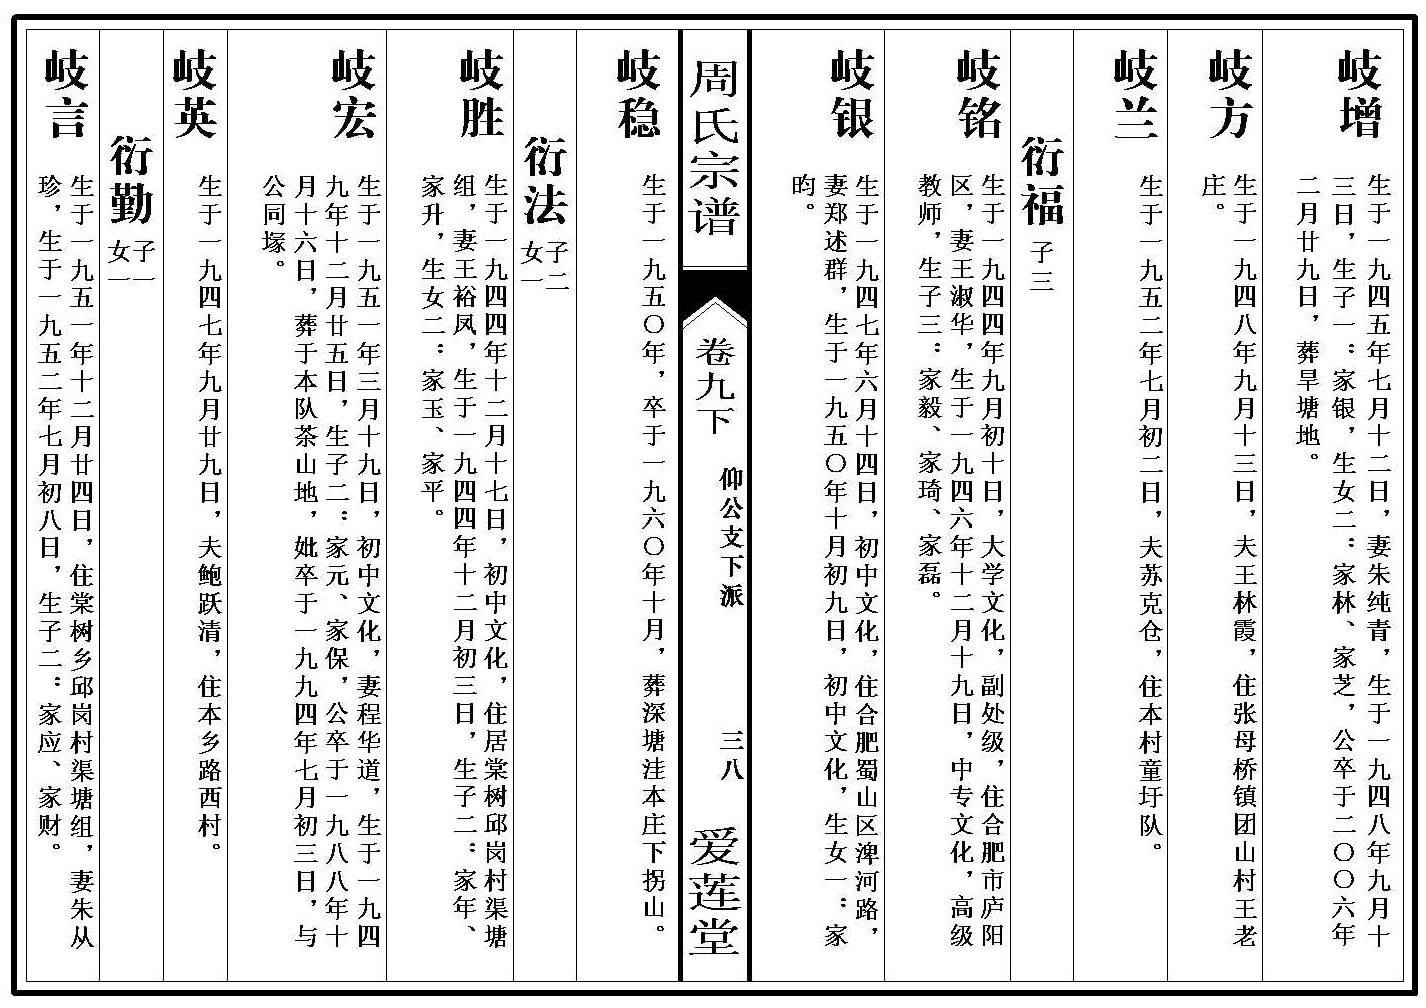 岐增
生于一九四五年七月十二日，妻朱纯青，生于一九四八年九月十
三日，生子一：家银，生女二：家林、家芝，公卒于二〇〇六年
二月廿九日，葬旱塘地。
岐方
生于一九四八年九月十三日，夫王林霞，住张母桥镇团山村王老
庄。
岐兰
生于一九五二年七月初二日，夫苏克仓，住本村童圩队。
衍福
子三
岐铭
生于一九四四年九月初十日，大学文化，副处级，住合肥市庐阳
区，妻王淑华，生于一九四六年十二月十九日，中专文化，高级
教师，生子三：家毅、家琦、家磊。
岐银
生于一九四七年六月十四日，初中文化，住合肥蜀山区淠河路，
妻郑述群，生于一九五〇年十月初九日，初中文化，生女一：家
昀。
周氏宗谱
卷九下
仰公支下派
三八
爱莲堂
岐稳
生于一九五〇年，卒于一九六〇年十月，葬深塘洼本庄下拐山。
衍法
子二
女一
岐胜
生于一九四四年十二月十七日，初中文化，住居棠树邱岗村渠塘
组，妻王裕凤，生于一九四四年十二月初三日，生子二：家年、
家升，生女二：家玉、家平。
岐宏
生于一九五一年三月十九日，初中文化，妻程华道，生于一九四
九年十二月廿五日，生子二：家元、家保，公卒于一九八八年十
月十六日，葬于本队茶山地，妣卒于一九九四年七月初三日，与
公同塚。
岐英
生于一九四七年九月廿九日，夫鲍跃清，住本乡路西村。
衍勤
子一
女一
岐言
生于一九五一年十二月廿四日，住棠树乡邱岗村渠塘组，妻朱从
珍，生于一九五二年七月初八日，生子二：家应、家财。